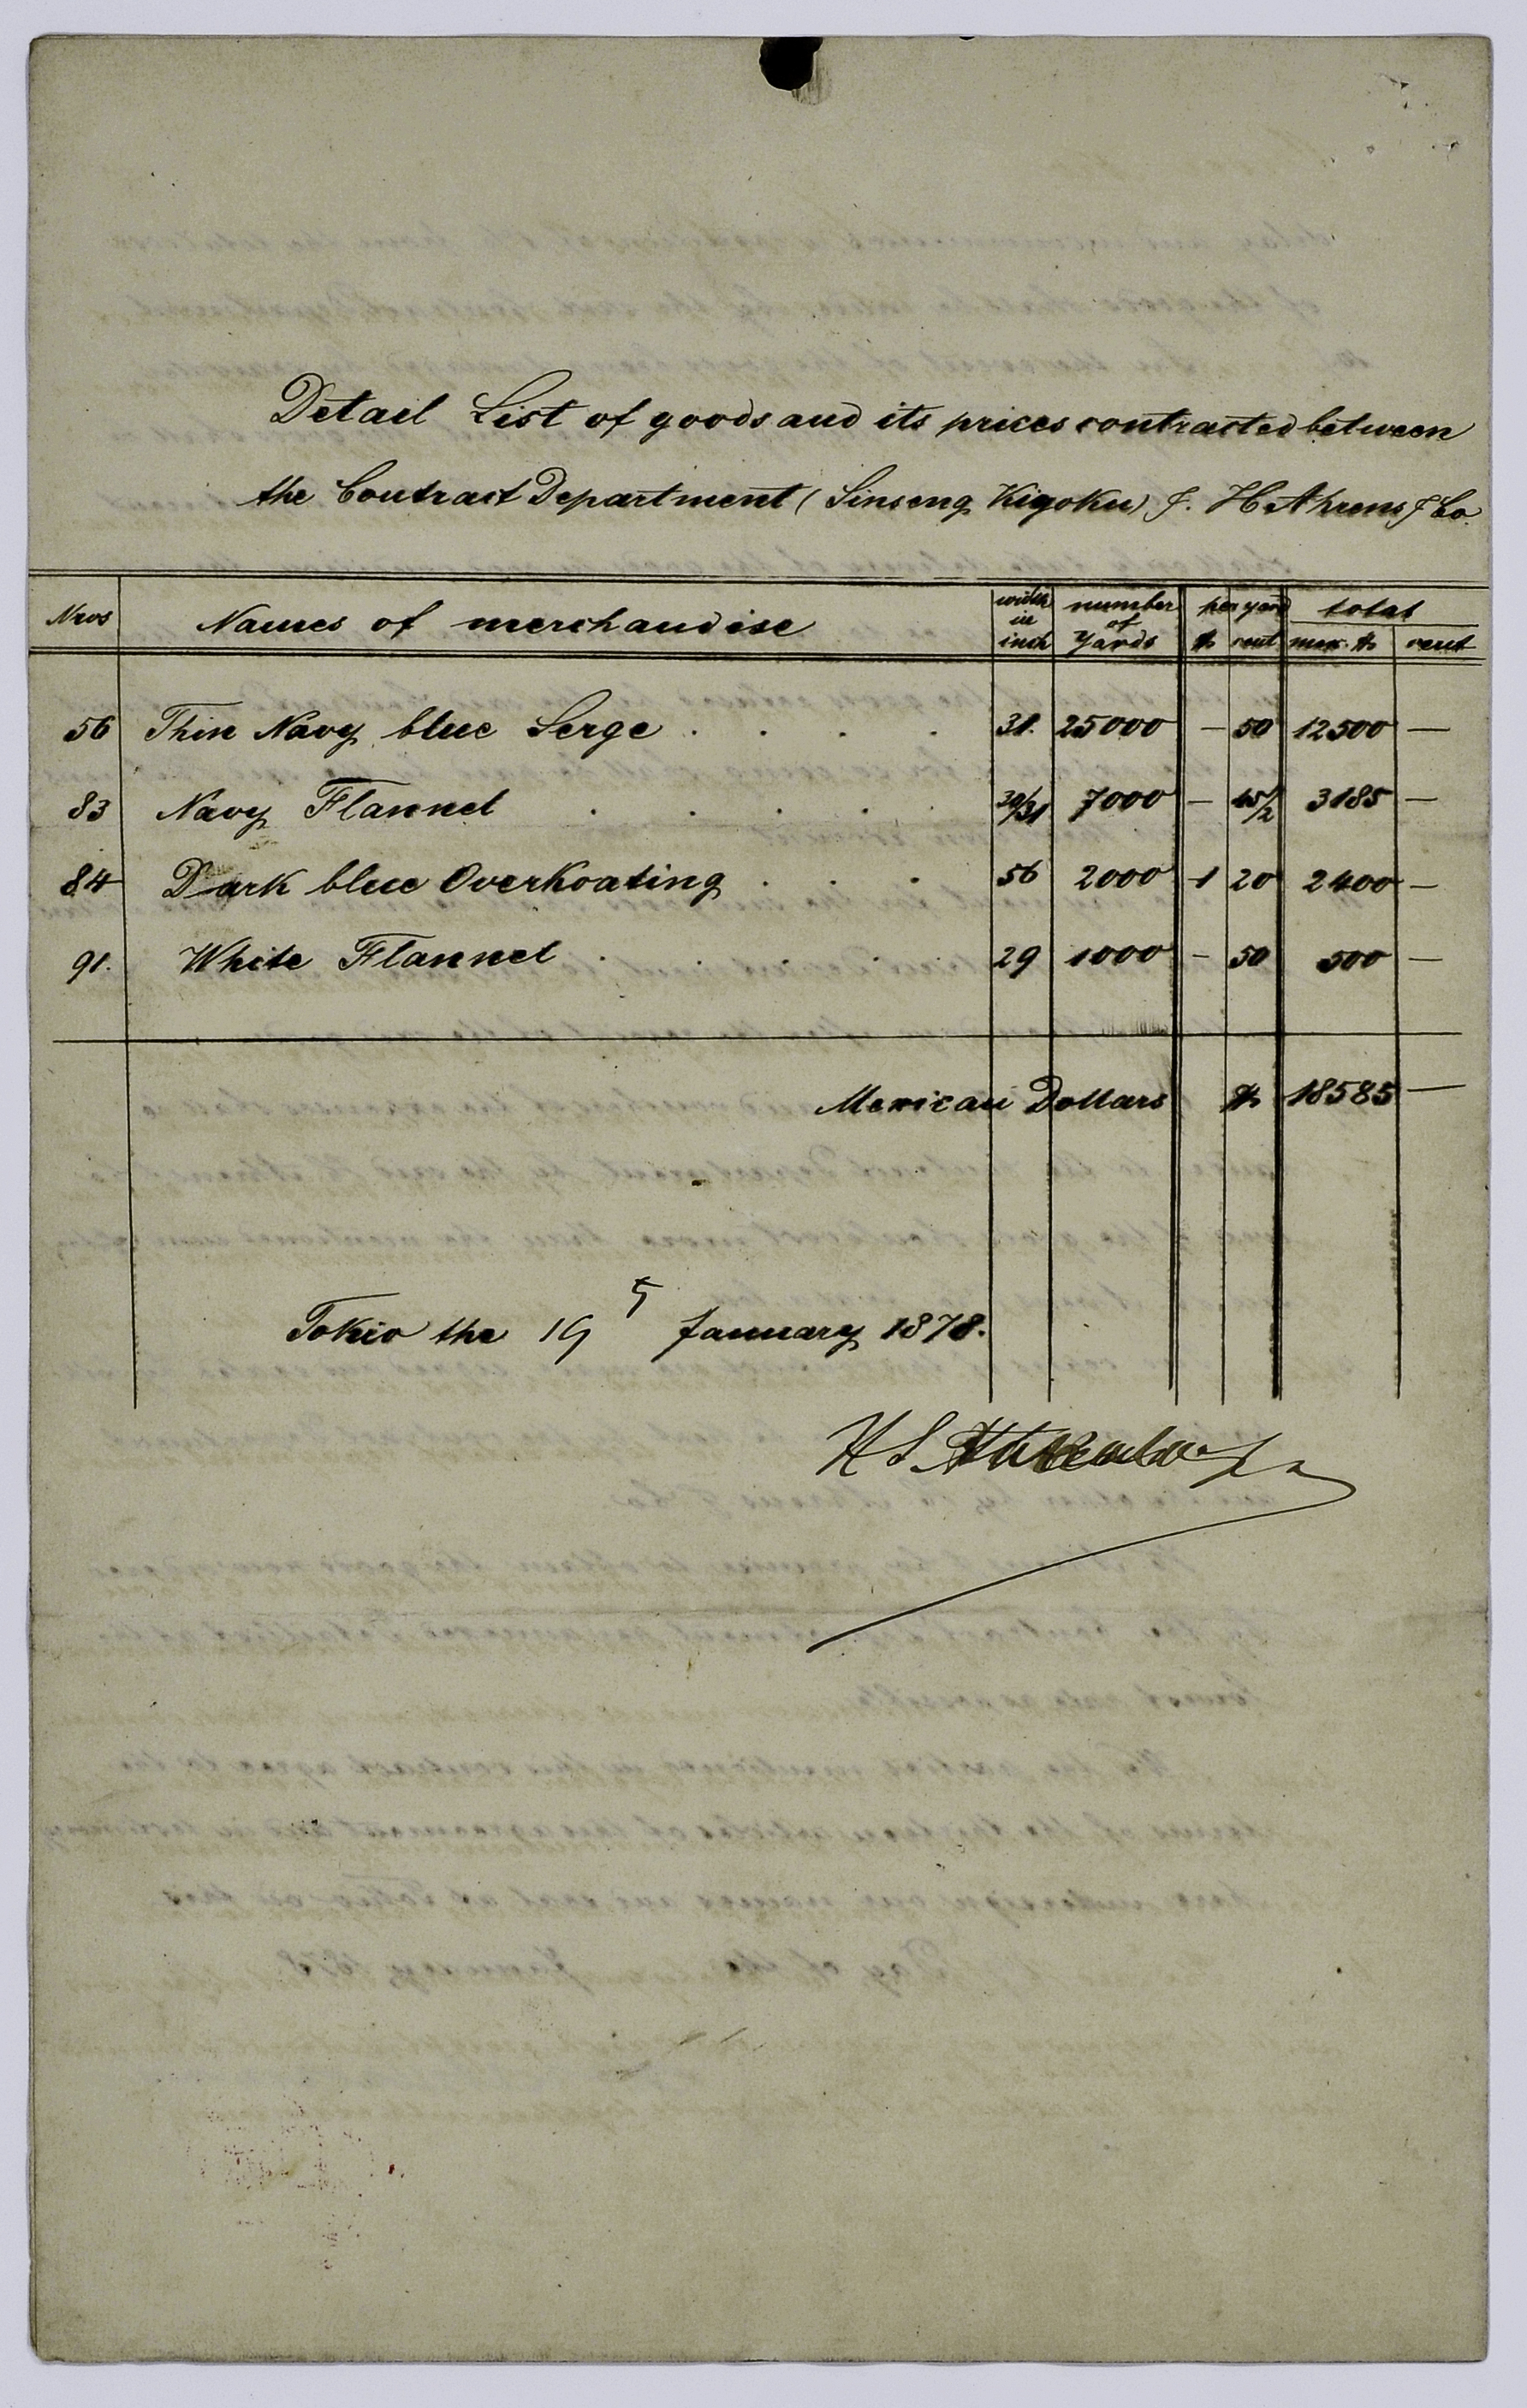 Detail List of goods and its prices contracted between
the Contract Department (Sinseng Kigoku) & H Ahrens & Co.
Nros Names of merchandise width in inch number of Yards per yard $ cent total mex. $ cent
56 Thin Navy blue Serge . . . . 31. 25000 – 50 12500 —
83 Navy Flannel . . . . . 30/31 7000 – 45½ 3185 —
84 Dark blue Overkoating . . . 56 2000 1 20 2400 –
91. White Flannel . . . 29 1000 – 50 500 —
Mexican Dollars $ 18585 —
Tokio the 19 January 1878.